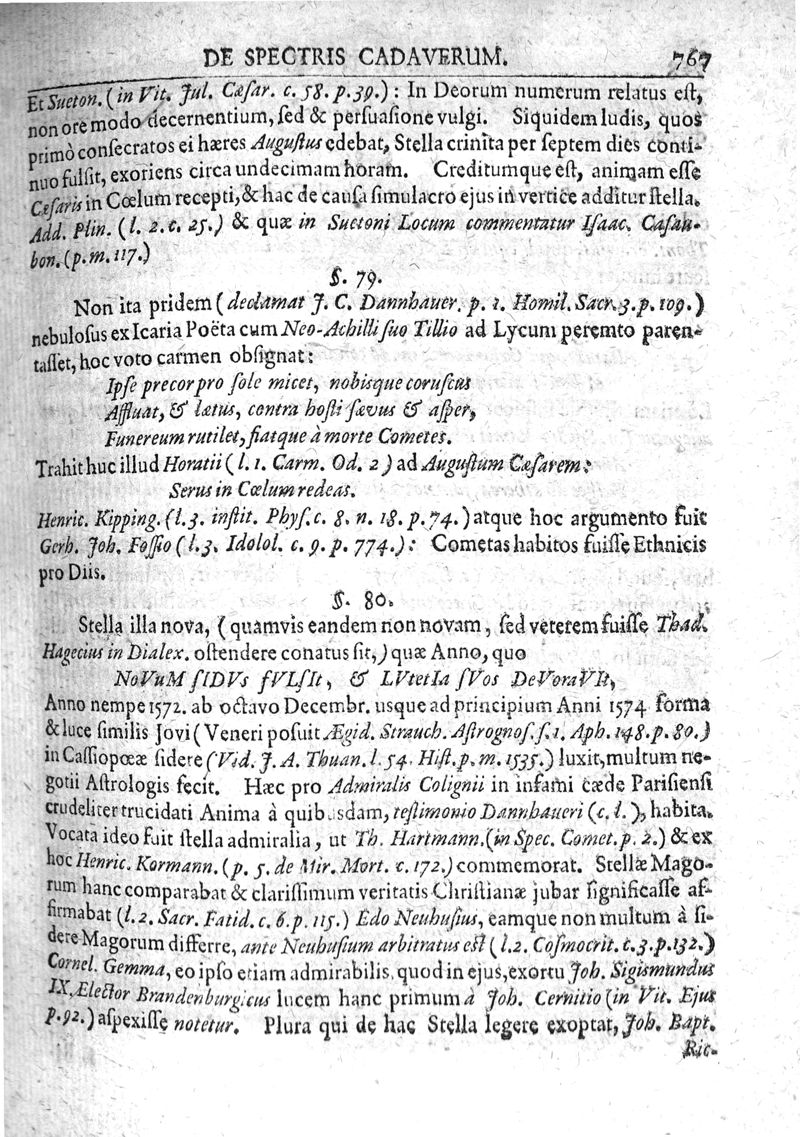 DE SPECTRIS CADAVERUM. 767
Et Sueton. (in Vit. Jul. Cæsar. c. 58. p. 39.): In Deorum numerum relatus eſt,
non ore modo decernentium, ſed & perſuaſione vulgi. Siquidem ludis, quos
primò conſecratos ei hæres Auguſtus edebat, Stella crinita per ſeptem dies conti-
nuo fulſit, exoriens circa undecimam horam. Creditumque eſt, animam eſſe
Cæſaris in Cœlum recepti, & hac de cauſa ſimulacro ejus in vertice additur ſtella.
Add. Plin. (l. 2. c. 25.) & quæ in Suetoni Locum commentatur Iſaac. Caſau-
bon. (p. m. 117.)
§. 79.
Non ita pridem (declamat J. C. Dannhauer. p. 1. Homil. Sacr. 3. p. 109.)
nebuloſus ex Icaria Poëta cum Neo-Achilli ſuo Tillio ad Lycum peremto paren-
taſſet, hoc voto carmen obſignat:
Ipſe precor pro ſole micet, nobisque coruſcus
Affluat, & lætus, contra hoſti ſævus & aſper,
Funereum rutilet, fiatque à morte Cometes.
Trahit huc illud Horatii (l. 1. Carm. Od. 2) ad Auguſtum Cæſarem:
Serus in Cœlum redeas.
Henric. Kipping. (l. 3. inſtit. Phyſ. c. 8. n. 18. p. 74.) atque hoc argumento fuit
Gerh. Joh. Foſſio (l. 3. Idolol. c. 9. p. 774.): Cometas habitos fuiſſe Ethnicis
pro Diis.
§. 80.
Stella illa nova, (quamvis eandem non novam, ſed veterem fuiſſe Thad.
Hagecius in Dialex. oſtendere conatus ſit,) quæ Anno, quo
NoVuM ſIDVs fVLſIt, & LVtetIa ſVos DeVoraVIt,
Anno nempe 1572. ab octavo Decembr. usque ad principium Anni 1574 forma
& luce ſimilis Jovi (Veneri poſuit Ægid. Strauch. Aſtrognoſ. ſ. 1. Aph. 148. p. 80.)
in Caſſiopœæ ſidere (Vid. J. A. Thuan. l. 54. Hiſt. p. m. 1535.) luxit, multum ne-
gotii Aſtrologis fecit. Hæc pro Admiralis Colignii in infami cæde Pariſienſi
crudeliter trucidati Anima à quibusdam, teſtimonio Dannhaueri (c. l.), habita.
Vocata ideo fuit ſtella admiralia, ut Th. Hartmann. (in Spec. Comet. p. 2.) & ex
hoc Henric. Kormann. (p. 5. de Mir. Mort. c. 172.) commemorat. Stellæ Mago-
rum hanc comparabat & clariſſimum veritatis Chriſtianæ jubar ſignificaſſe af-
firmabat (l. 2. Sacr. Fatid. c. 6. p. 115.) Edo Neuhuſius, eamque non multum à ſi-
dere Magorum differre, ante Neuhuſium arbitratus eſt (l. 2. Coſmocrit. c. 3. p. 132.)
Cornel. Gemma, eo ipſo etiam admirabilis, quod in ejus, exortu Joh. Sigismundus
IX. Elector Brandenburgicus lucem hanc primum à Joh. Cernitio (in Vit. Ejus
p. 92.) aſpexiſſe notetur. Plura qui de hac Stella legere exoptat, Joh. Bapt.
Ric-